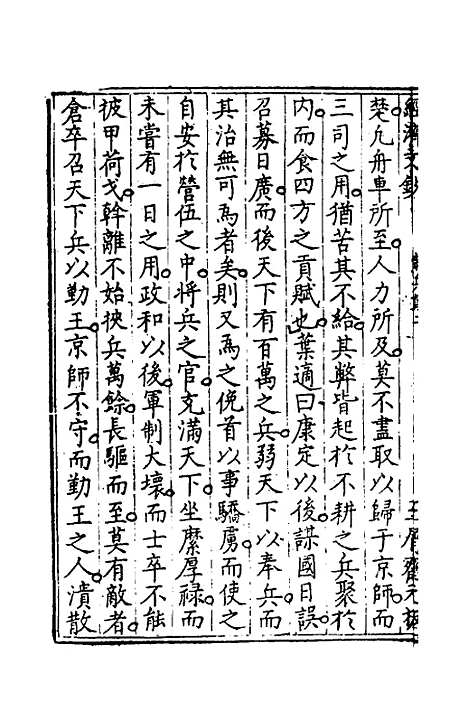 經濟文鈔
楚凢舟車所至人力所及莫不盡取以歸于京師而
三司之用猶苦其不給其弊皆起於不耕之兵聚於
内而食四方之貢賦也葉適曰康定以後謀國日誤
召募日廣而後天下有百萬之兵弱天下以奉兵而
其治無可爲者矣則又爲之俛首以事驕虜而使之
自安於營伍之中將兵之官充滿天下坐縻厚祿而
未嘗有一日之用政和以後軍制大壞而士卒不能
披甲荷戈斡離不始挾兵萬餘長驅而至莫有敵者
倉卒召天下兵以勤王京師不守而勤王之人潰散